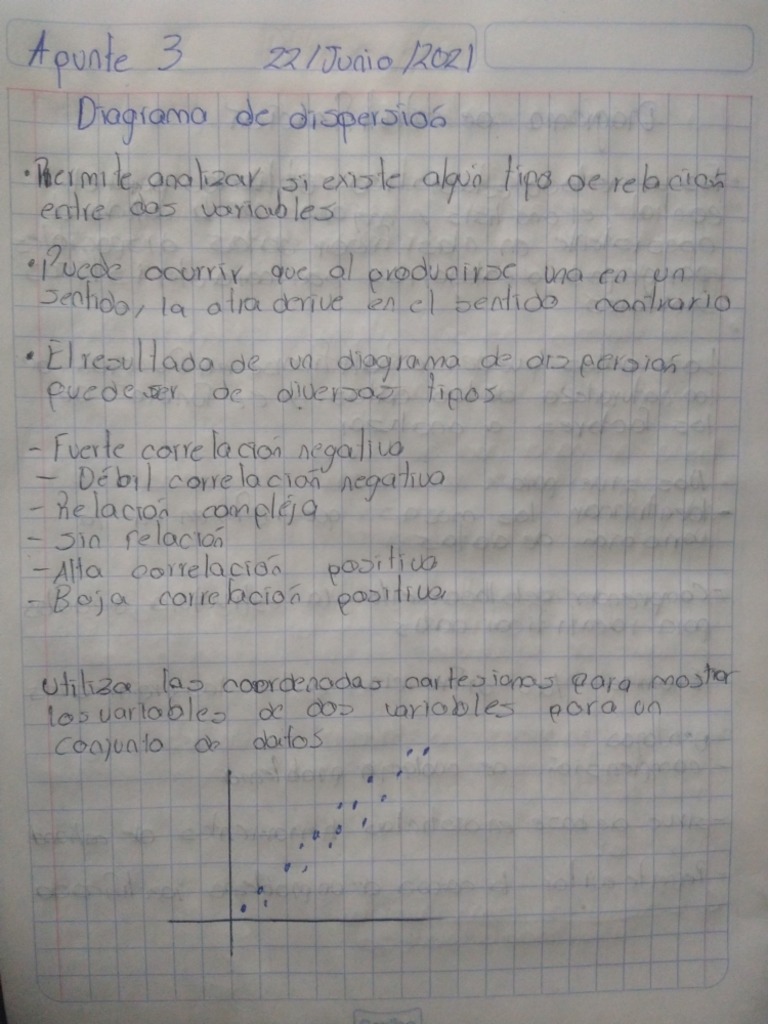 Apunte 3 22/Junio/2021
Diagrama de dispersión
• Permite analizar si existe algún tipo de relación
entre dos variables
• Puede ocurrir que al producirse una en un
sentido, la otra derive en el sentido contrario
• El resultada de un diagrama de dispersión
puede ser de diversos tipos
- Fuerte correlación negativa
- Débil correlación negativa
- Relación compleja
- Sin relación
- Alta correlación positiva
- Baja correlación positiva
Utiliza las coordenadas cartesianas para mostrar
las variables de dos variables para un
conjunto de datos